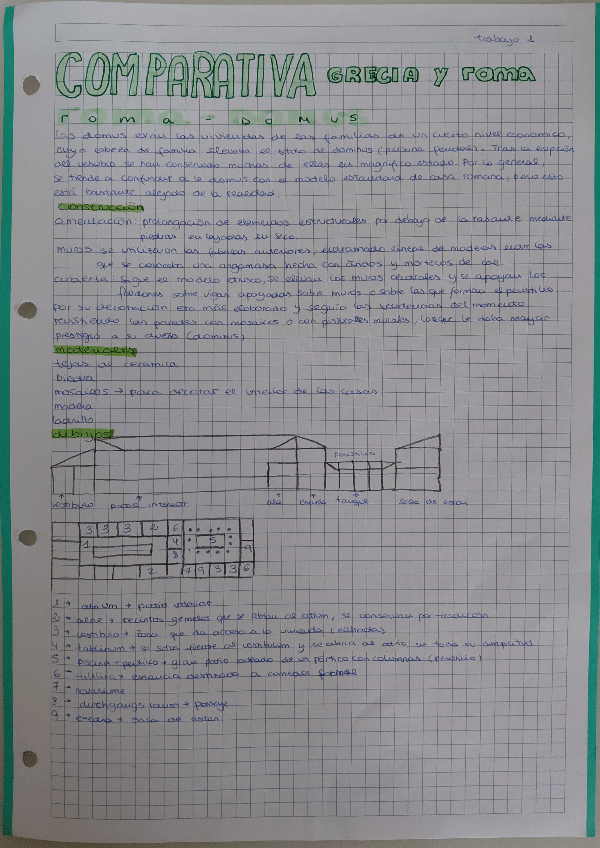 trabajo 1
COMPARATIVA GRECIA y roma
roma - DOMUS
Las domus eran las viviendas de las familias de un cierto nivel economico,
cuyo cabeza de familia llevaba el titulo de dominus (persona feudal). Tras la erupción
del vesubio se han conservado muchas de ellas en magnifico estado. Por lo general,
se tiende a confundir a la domus con el modelo estandard de casa romana, pero esto
está bastante alejado de la realidad.
construcción
cimentación: prolongación de elementos estructurales por debajo de la rasante mediante
piedras en seco.
muros se utilizaron las fabricas anteriores, entramado de maderas entre las
que se colocaba una argamasa hecha con cantos y morteros de cal.
cubierta: sigue el modelo etrusco, se elevan los muros centrales y se apoyan los
sobre vigas apoyadas sobre muros o sobre las que forman el peristilo
por su decoración era más elaborado y seguia las tendencias del momento
revistiendo las paredes con mosaicos o con pinturas murales, lo que le daba mayor
prestigio a su dueño (dominus)
materiales
tejas de ceramica
piedra
mosaicos → para decorar el interior de las casas
madera
ladrillo
dibujos
peristilo
vestibulo patio interior ala exedra tanque sala de estar
3 3 3 2 6
1 4 5 9
8
2 7 9 3 3 6
1 → atrium → patio interior
2 → alae → recintos gemelos que se abrian al atrium, se conservan por tradición
3 → vestibulo → zona que da acceso a la vivienda (entradas)
4 → tablinum → se situa frente al vestibulum y se abria al atrio en toda su amplitud
5 → piscina → peristilo → gran patio rodeado de un pórtico con columnas (peristilo)
6 → triclinia → estancia destinada a comedor formal
7 →
8 → durchgangs raum → pasaje
9 → exedra → sala de estar